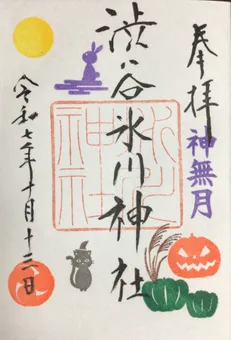 奉拝
神無月
渋谷氷川神社
令和七年十月十三日